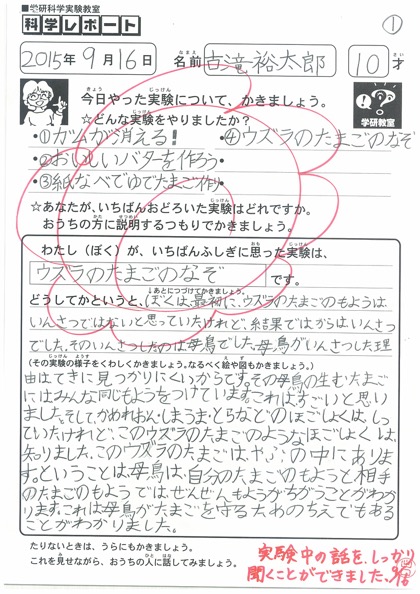 ■学研科学実験教室
科学レポート
①
2015年9月16日 名前 古滝裕太郎 10才
今日やった実験について、かきましょう。
☆どんな実験をやりましたか?
・①ガムが消える! ・④ウズラのたまごのなぞ
・②おいしいバターを作ろう
・③紙なべでゆでたまご作り
学研教室
☆あなたが、いちばんおどろいた実験はどれですか。
おうちの方に説明するつもりでかきましょう。
わたし(ぼく)が、いちばんふしぎに思った実験は、
ウズラのたまごのなぞ です。
↓あとにつづけてかきましょう。
どうしてかというと、(ぼくは、最初に、ウズラのたまごのもようは
いんさつではないと思っていたけれど、結果ではからはいんさつ
でした。そのいんさつしたのは母鳥でした。母鳥がいんさつした理
(その実験の様子をくわしくかきましょう。なるべく絵や図もかきましょう。)
由はてきに見つかりにくいからです。その母鳥の生むたまご
にはみんな同じもようをつけています。これはすごいと思い
ました。そして、かめれおん・しまうま・とらなどのほごしょくは、しっ
ていたけれど、このウズラのたまごのようなほごしょくは、
知りました。このウズラのたまごは、やぶの中にありま
す。ということは母鳥は、自分のたまごのもようと相手
のたまごのもようでは、ぜんぜんもようがちがうことがわか
ります。これは母鳥がたまごを守るためのちえでもある
ことがわかりました。
たりないときは、うらにもかきましょう。
これを見せながら、おうちの人に話してみましょう。
実験中の話を、しっかり
聞くことができました。